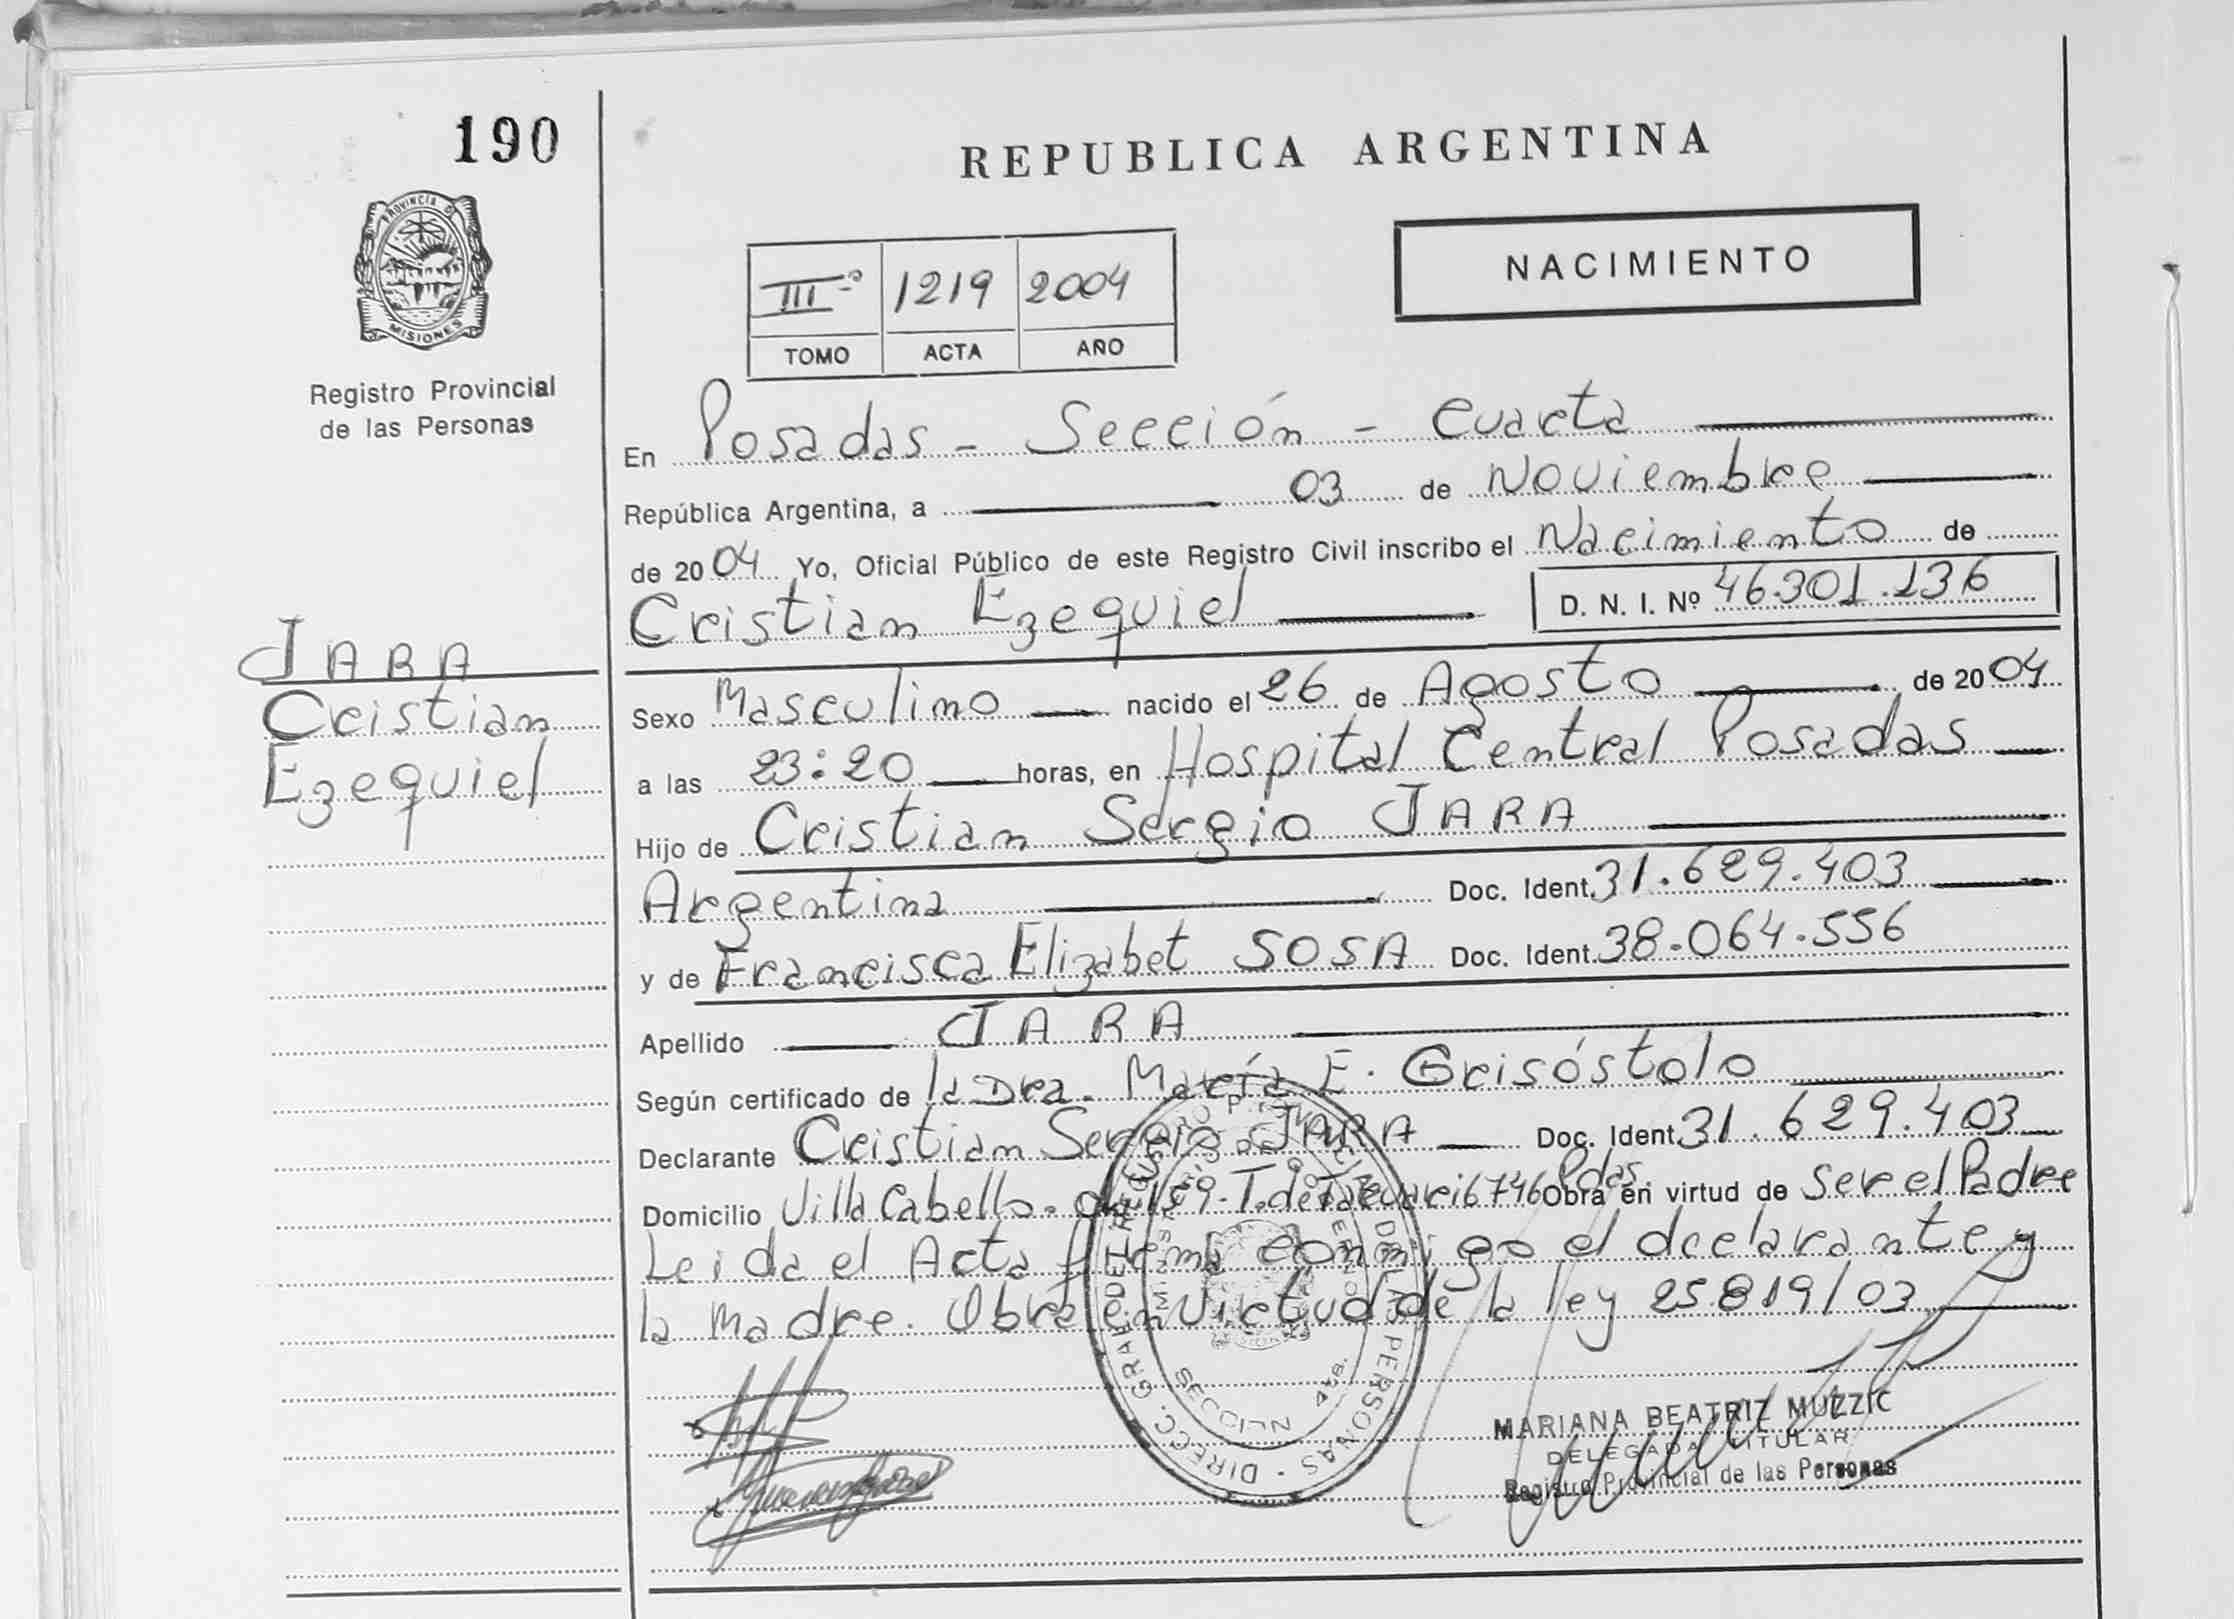 190
REPUBLICA ARGENTINA
PROVINCIA DE
MISIONES
Registro Provincial
de las Personas
NACIMIENTO
III º 1219 2004
TOMO ACTA AÑO
En Posadas - Sección - Cuarta
República Argentina, a 03 de Noviembre
de 2004 Yo, Oficial Público de este Registro Civil inscribo el Nacimiento de
Cristian Ezequiel D. N. I. Nº 46.301.136
JARA
Cristian
Ezequiel
Sexo Masculino nacido el 26 de Agosto de 2004
a las 23:20 horas, en Hospital Central Posadas
Hijo de Cristian Sergio JARA
Argentina Doc. Ident. 31.629.403
y de Francisca Elizabet SOSA Doc. Ident. 38.064.556
Apellido JARA
Según certificado de la Dra. María E. Grisóstolo
Declarante Cristian Sergio JARA Doc. Ident. 31.629.403
Domicilio Villa Cabello. 6746 Pdas. Obra en virtud de Ser el Padre
Leida el Acta firma conmigo el declarante y
la Madre. Obra en Virtud de la ley 25819/03
MARIANA BEATRIZ MUZZIC
DELEGADA TITULAR
Registro Provincial de las Personas